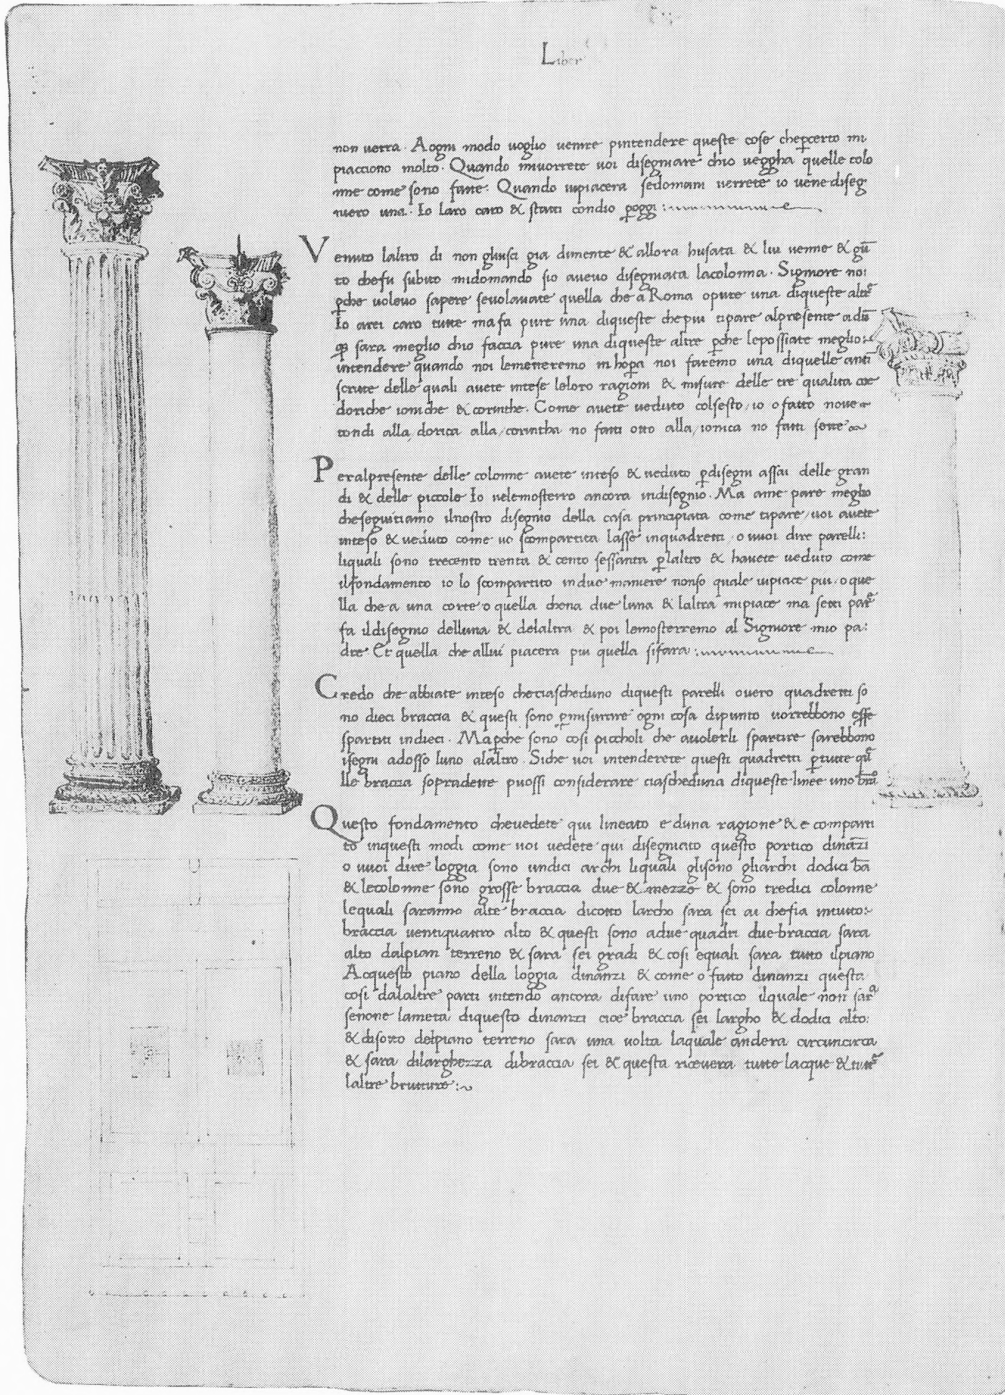 Liber
non verra . Aogni modo voglio venire pintendere queste cose chepcerto mi
piacciono molto . Quando mivorrete voi disegniare chio veggha quelle colo
nne come sono fatte . Quando vipiacera sedomani verrete io vene diseg
niero una . Io laro caro & statti condio poggi :
Venuto laltro di non gliusci gia dimente & allora husata & lui venne &
to chefu subito midomando sio avevo disegniata lacolonna . Signore noi
pche volevo sapere sevolavate quella che a Roma opure una diqueste altre
Io arei caro tutte ma fa pure una diqueste chepiu tipare alpresente
sara meglio chio faccia pure una diqueste altre pche lepossiate meglio
intendere quando noi lemetteremo in hopa noi faremo una diquelle anti
scritte delle quali avete intese leloro ragioni & misure delle tre qualita cioe
doriche ioniche & corinthe . Come avete veduto colsesto / io o fatto nove
tondi alla / dorica alla / corintha no fatti otto alla / ionica no fatti sette
Peralpresente delle colonne avete inteso & veduto pdisegni assai delle gran
di & delle piccole Io velemosterro ancora indisegnio . Ma ame pare meglio
cheseguitiamo ilnostro disegnio della casa principiata come tipare / voi avete
inteso & veduto come vo scompartita lasse inquadretti / o vuoi dire parelli :
liquali sono trecento trenta & cento sessanta plaltro & havete veduto come
ilfondamento io lo scompartito indue maniere nonso quale vipiace piu / o que
lla che a una corte o quella chena due luna & laltra mipiace ma setti pare
fa ildisegnio delluna & delaltra & poi lemosterremo al Signore mio pa:
dre Et quella che allui piacera piu quella sifara :
Credo che abbiate inteso checiascheduno diquesti parelli overo quadretti so
no dieci braccia & questi sono pmisurare ogni cosa dipunto vorrebbono esse
spartiti indieci . Mapche sono cosi picciholi che avolerli spartire sarebbono
isegni adosso luno alaltro . Siche voi intenderete questi quadretti ptutte
lle braccia sopradette puossi considerare ciascheduna diqueste linee uno
Questo fondamento chevedete qui lineato e duna ragione & e comparti
to inquesti modi come voi vedete qui disegniato questo portico dinazi
o vuoi dire loggia sono undici archi liquali glisono gliarchi dodici ba
& lecolonne sono grosse braccia due & mezzo & sono tredici colonne
lequali saranno alte braccia diciotto larcho sara sei ai chesia intutto :
braccia ventiquattro alto & questi sono adue quadri due braccia sara
alto dalpian terreno & sara sei gradi & cosi equali sara tutto ilpiano
Acquesto piano della loggia dinanzi & come o fatto dinanzi questa
cosi dalaltre parti intendo ancora difare uno portico ilquale non sara
senone lameta diquesto dinanzi cioe braccia sei largho & dodici alto:
& disotto delpiano terreno sara una volta laquale andera circuncirca
& sara dilarghezza dibraccia sei & questa ricevera tutte lacque & tutte
laltre brutture :